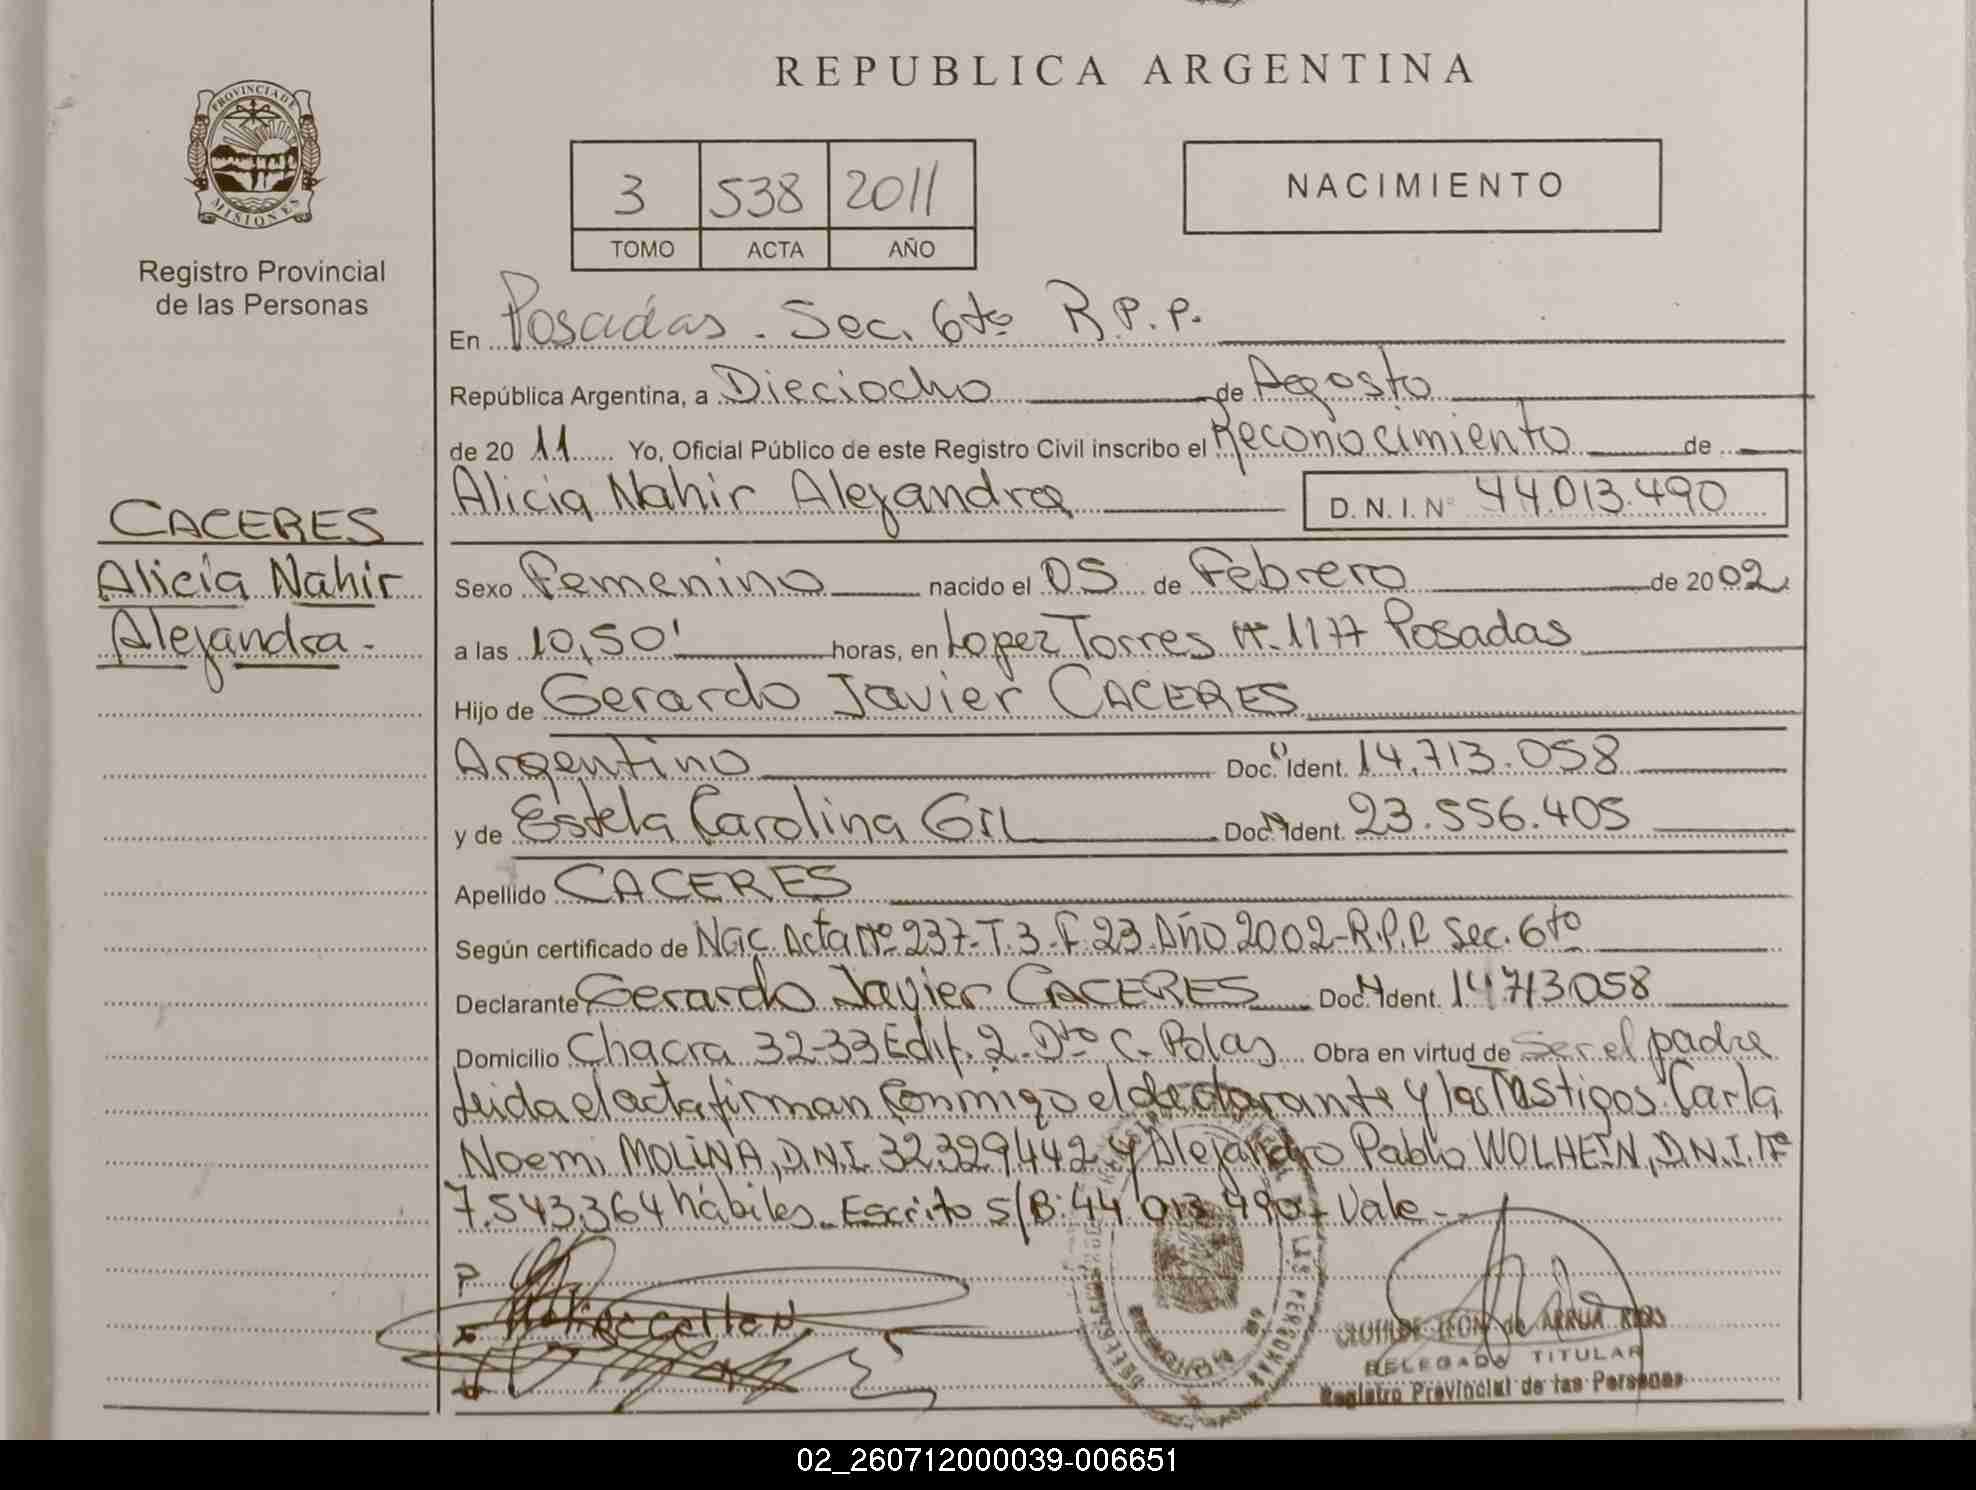 REPUBLICA ARGENTINA
PROVINCIA DE
MISIONES
Registro Provincial
de las Personas
3 538 2011
TOMO ACTA AÑO
NACIMIENTO
En Posadas. Sec. 6to R.P.P.
República Argentina, a Dieciocho de Agosto
de 2011 Yo, Oficial Público de este Registro Civil inscribo el Reconocimiento de
Alicia Nahir Alejandra D.N.I. Nº 44.013.490
CACERES
Alicia Nahir
Alejandra-
Sexo Femenino nacido el 05 de Febrero de 2002
a las 10,50' horas, en Lopez Torres Nº 1177 Posadas
Hijo de Gerardo Javier CACERES
Argentino Doc. Ident. 14.713.058
y de Estela Carolina GIL Doc. Ident. 23.556.405
Apellido CACERES
Según certificado de Nac. Acta Nº 237-T.3-F.23-Año 2002-R.P.P. Sec. 6to
Declarante Gerardo Javier CACERES Doc. Ident. 14713058
Domicilio Chacra 32-33 Edif. 2. Dto C. Polas Obra en virtud de Ser el padre
leida el acta firman Conmigo el declarante y los Testigos: Carla
Noemi MOLINA, D.N.I. 32.329.442 y Alejandro Pablo WOLHEIN, D.N.I. Nº
7.543.364 hábiles. Escrito S/B: 44.013.490- Vale-
DELEGADO TITULAR
Registro Provincial de las Personas
02_260712000039-006651